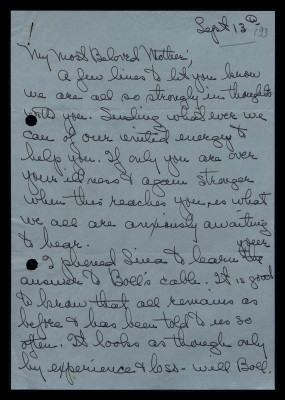 Sept 13th
My Most Beloved Mother,
A few lines to let you know
we are all so strongly in thoughts
with you. Sending whatever we
can of our united energy to
help you. If only you are over
your illness & again stronger
when this reaches you, is what
we all are anxiously awaiting
to hear.
I phoned to learn your
answer to Boll's cable. It is good
to know that all remains as
before & has been told to us so
often. It looks as though only
by experience & loss - will Boll.